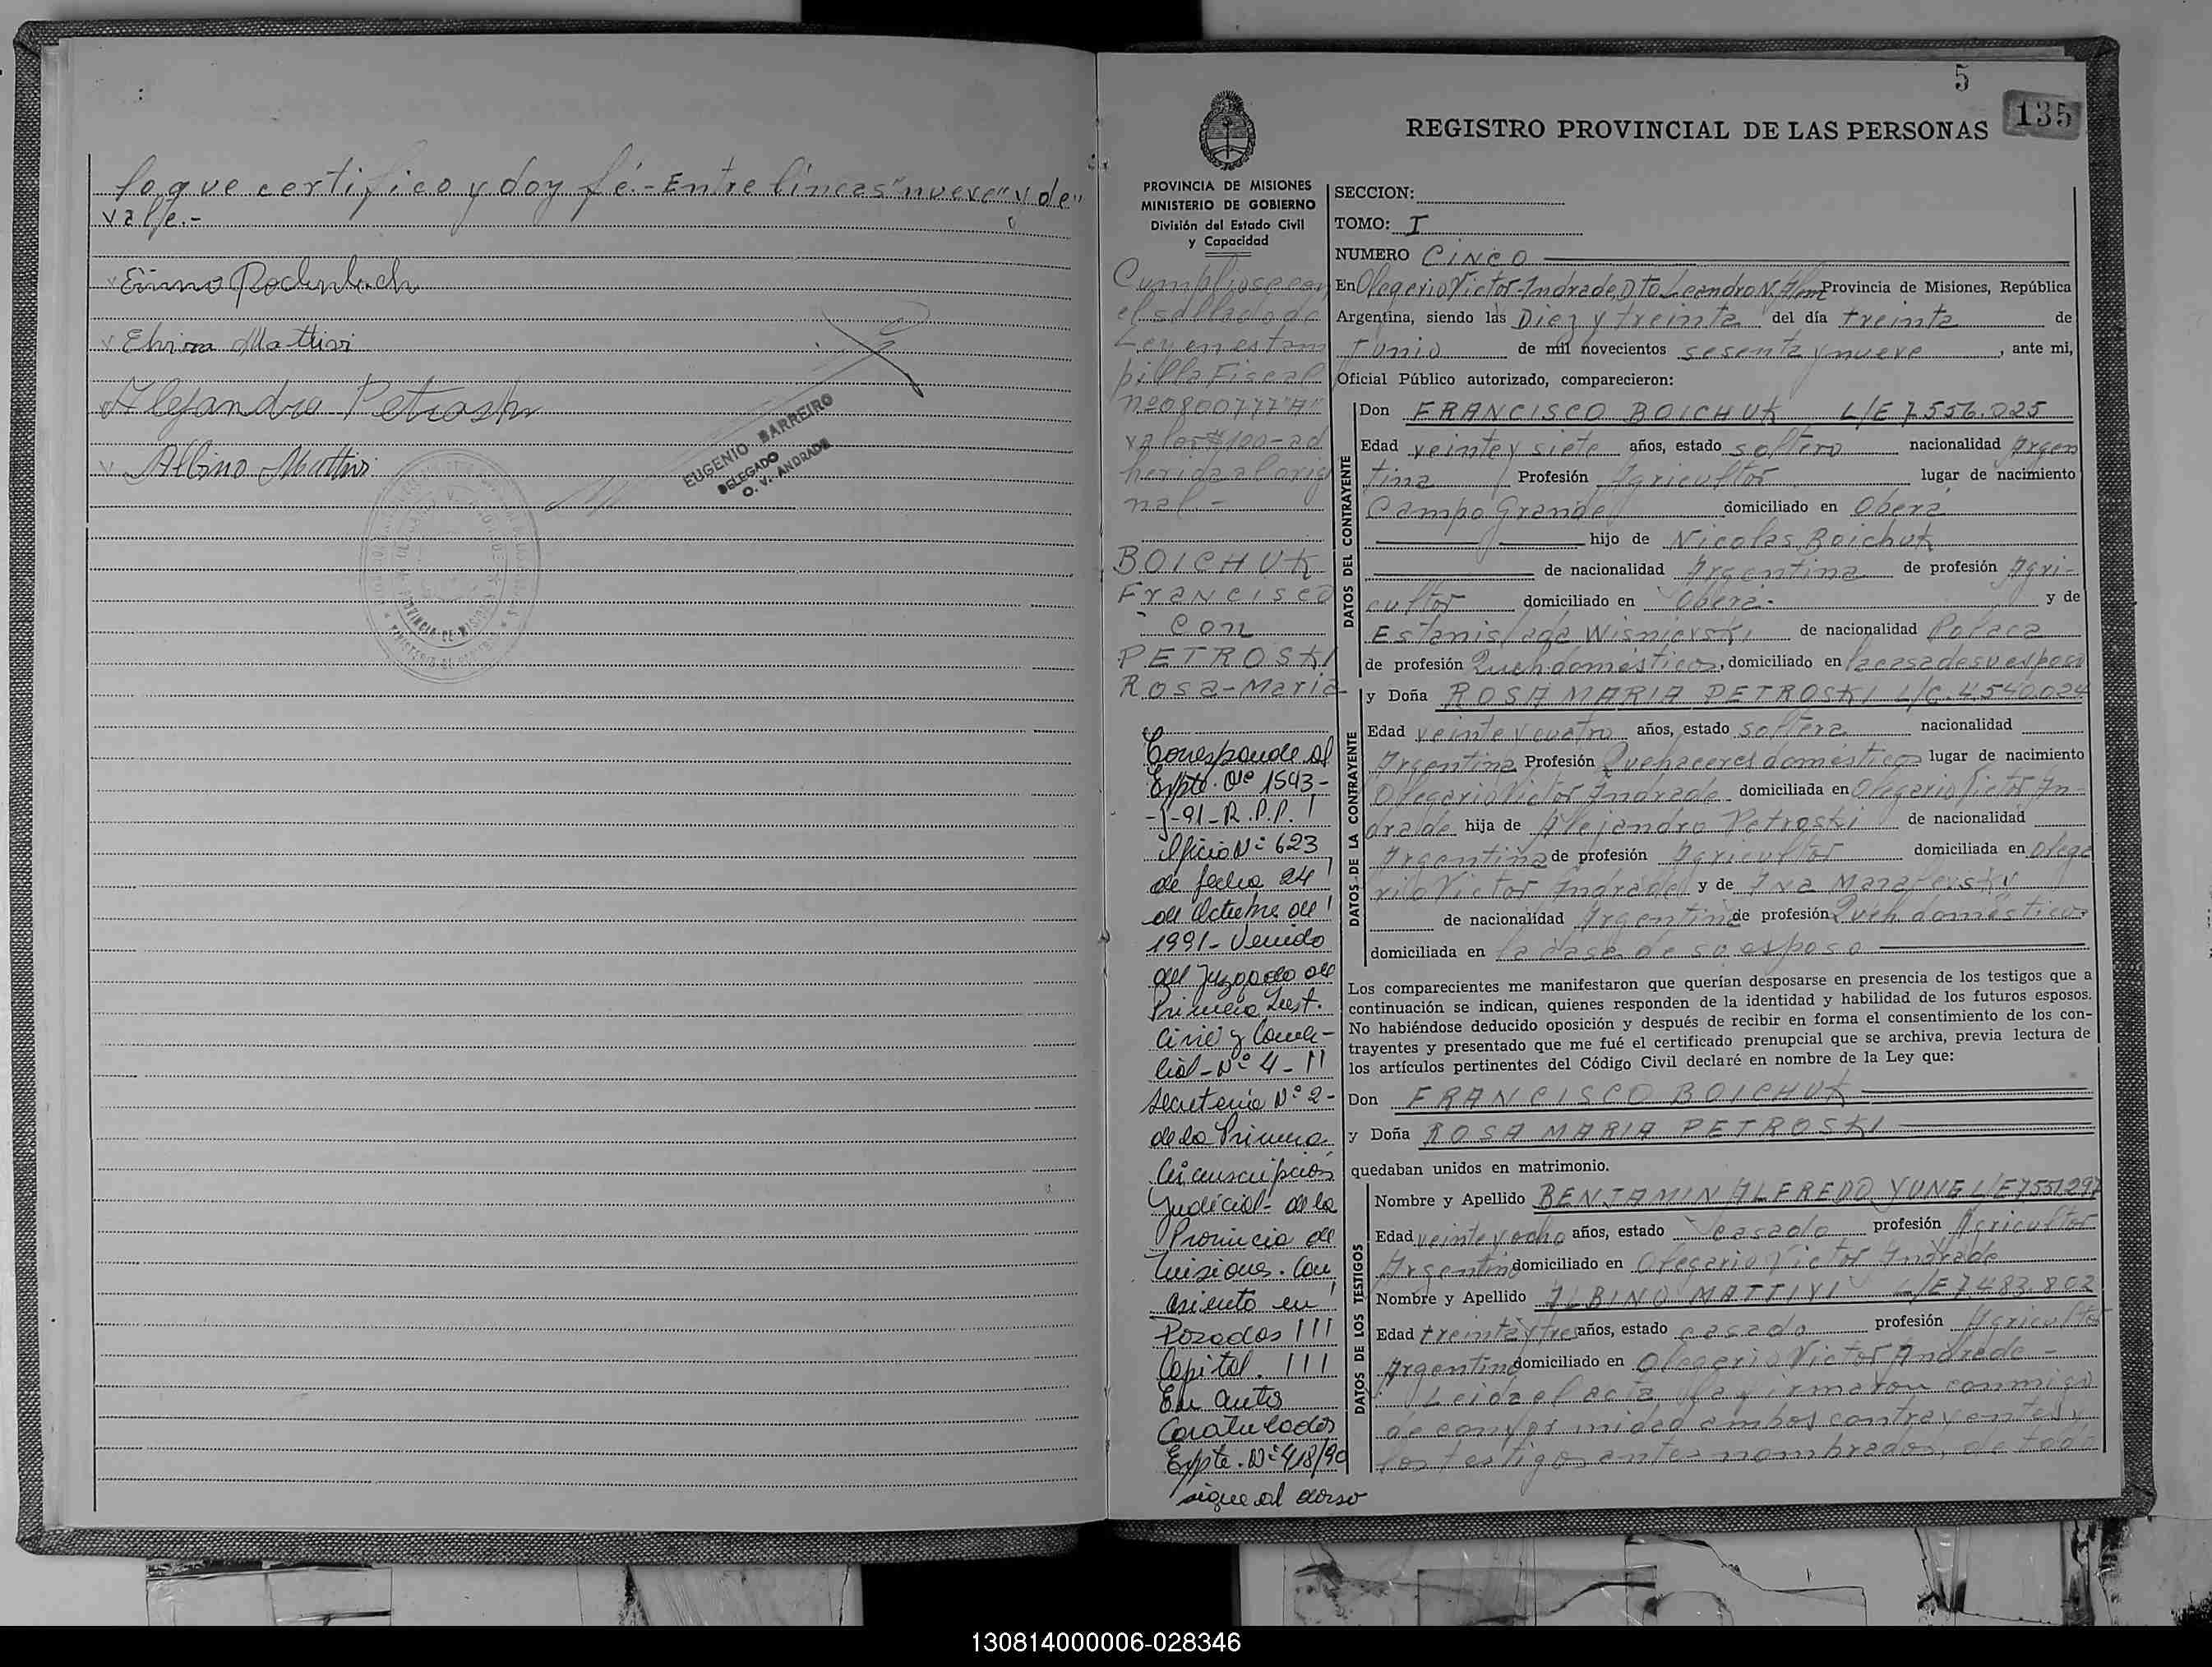 lo que certifico y doy fé.- Entre líneas "nueve" y "de"
vale.-
Elvira Mattivi
Alejandro Petroski
Albino Mattivi
EUGENIO BARREIRO
DELEGADO
O. V. ANDRADE
5
135
REGISTRO PROVINCIAL DE LAS PERSONAS
PROVINCIA DE MISIONES
MINISTERIO DE GOBIERNO
División del Estado Civil
y Capacidad
Cumpliose con
el sellado de
Ley en estam
pilla Fiscal
nº0800777"A"
valor $100-ad
herida al origi
nal.-
BOICHUK
Francisco
con
PETROSKI
Rosa-Maria
Corresponde al
Expte. Nº 1543-
-J-91-R.P.P.
Oficio Nº 623
de fecha 24
de Octubre de
1991- Venido
del Juzgado de
Primera Inst.
Civil y Comer-
cial-Nº 4-
Secretaria Nº 2-
de la Primera
Circunscripción
Judicial- de la
Provincia de
Misiones. Con
asiento en
Posadas
Capital.
En autos
Caratulados
Expte. Nº 418/90
sigue al dorso
SECCION:
TOMO: I
NUMERO CINCO
En Olegerio Victor Andrade, Dto Leandro N. Alem Provincia de Misiones, República
Argentina, siendo las Diez y treinta del día treinta de
Junio de mil novecientos sesenta y nueve, ante mi,
Oficial Público autorizado, comparecieron:
DATOS DEL CONTRAYENTE
Don FRANCISCO BOICHUK L/E 7.556.025
Edad veinte y siete años, estado soltero nacionalidad Argen
tina Profesión Agricultor lugar de nacimiento
Campo Grande domiciliado en Oberá
hijo de Nicolas Boichuk
de nacionalidad Argentina de profesión Agri-
cultor domiciliado en Oberá- y de
Estanislada Wisnievski de nacionalidad Polaca
de profesión Queh. domésticos, domiciliado en la casa de su esposo
DATOS DE LA CONTRAYENTE
y Doña ROSA MARIA PETROSKI L/C. 4.540.024
Edad veinte y cuatro años, estado soltera nacionalidad
Argentina Profesión Quehaceres domésticos lugar de nacimiento
Olegario Victor Andrade domiciliada en Olegario Victor An-
drade hija de Alejandro Petroski de nacionalidad
Argentina de profesión Agricultor domiciliada en Olega
rio Victor Andrade y de
de nacionalidad Argentina de profesión Queh. domésticos
domiciliada en la casa de su esposo
Los comparecientes me manifestaron que querían desposarse en presencia de los testigos que a
continuación se indican, quienes responden de la identidad y habilidad de los futuros esposos.
No habiéndose deducido oposición y después de recibir en forma el consentimiento de los con-
trayentes y presentado que me fué el certificado prenupcial que se archiva, previa lectura de
los artículos pertinentes del Código Civil declaré en nombre de la Ley que:
Don FRANCISCO BOICHUK
y Doña ROSA MARIA PETROSKI
quedaban unidos en matrimonio.
DATOS DE LOS TESTIGOS
Nombre y Apellido BENJAMIN ALFREDO YUNG L/E 7.551.297
Edad veinte y ocho años, estado casado profesión Agricultor
Argentino domiciliado en Olegario Victor Andrade
Nombre y Apellido ALBINO MATTIVI L/E 7.483.802
Edad treinta y tres años, estado casado profesión Agricultor
Argentino domiciliado en Olegario Victor Andrade-
Leida el acta la firmaron conmigo
de conformidad ambos contrayentes y
los testigos antes nombrados, de todo
130814000006-028346